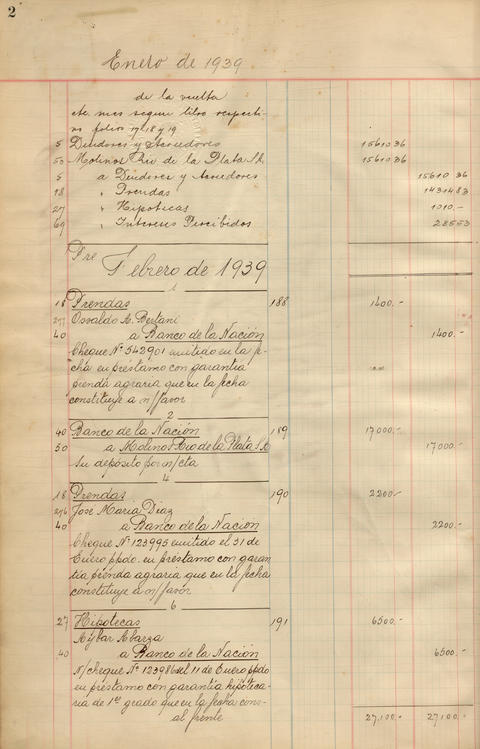 2
Enero de 1939
de la vuelta
cte. mes segun libro respecti-
vo folios 17, 18 y 19
5 Deudores y Acreedores 15610 36
50 Molinos Rio de la Plata S.A. 15610 36
5 a Deudores y Acreedores 15610 36
18 " Prendas 14314 83
27 " Hipotecas 1010.-
69 " Intereses Percibidos 285 53
Febrero de 1939
1
18 Prendas 188 1400.-
277 Osvaldo A. Bertani
40 a Banco de la Nación 1400.-
Cheque Nº 542901 emitido en la fe-
cha en préstamo con garantía
prenda agraria que en la fecha
constituye a n/favor
2
40 Banco de la Nación 189 17000.-
50 a Molinos Rio de la Plata S.A 17000.-
su depósito por n/cta
4
18 Prendas 190 2200.-
276 José María Diaz
40 a Banco de la Nación 2200.-
Cheque Nº 123995 emitido el 31 de
Enero ppdo. en préstamo con garan-
tía prenda agraria que en la fecha
constituye a n/favor
6
27 Hipotecas 191 6500.-
Aybar Abarza
40 a Banco de la Nación 6500.-
N/cheque Nº 123986 del 11 de Enero ppdo
en préstamo con garantía hipoteca-
ria de 1er grado que en la fecha cons-
al frente 27,100.- 27,100.-